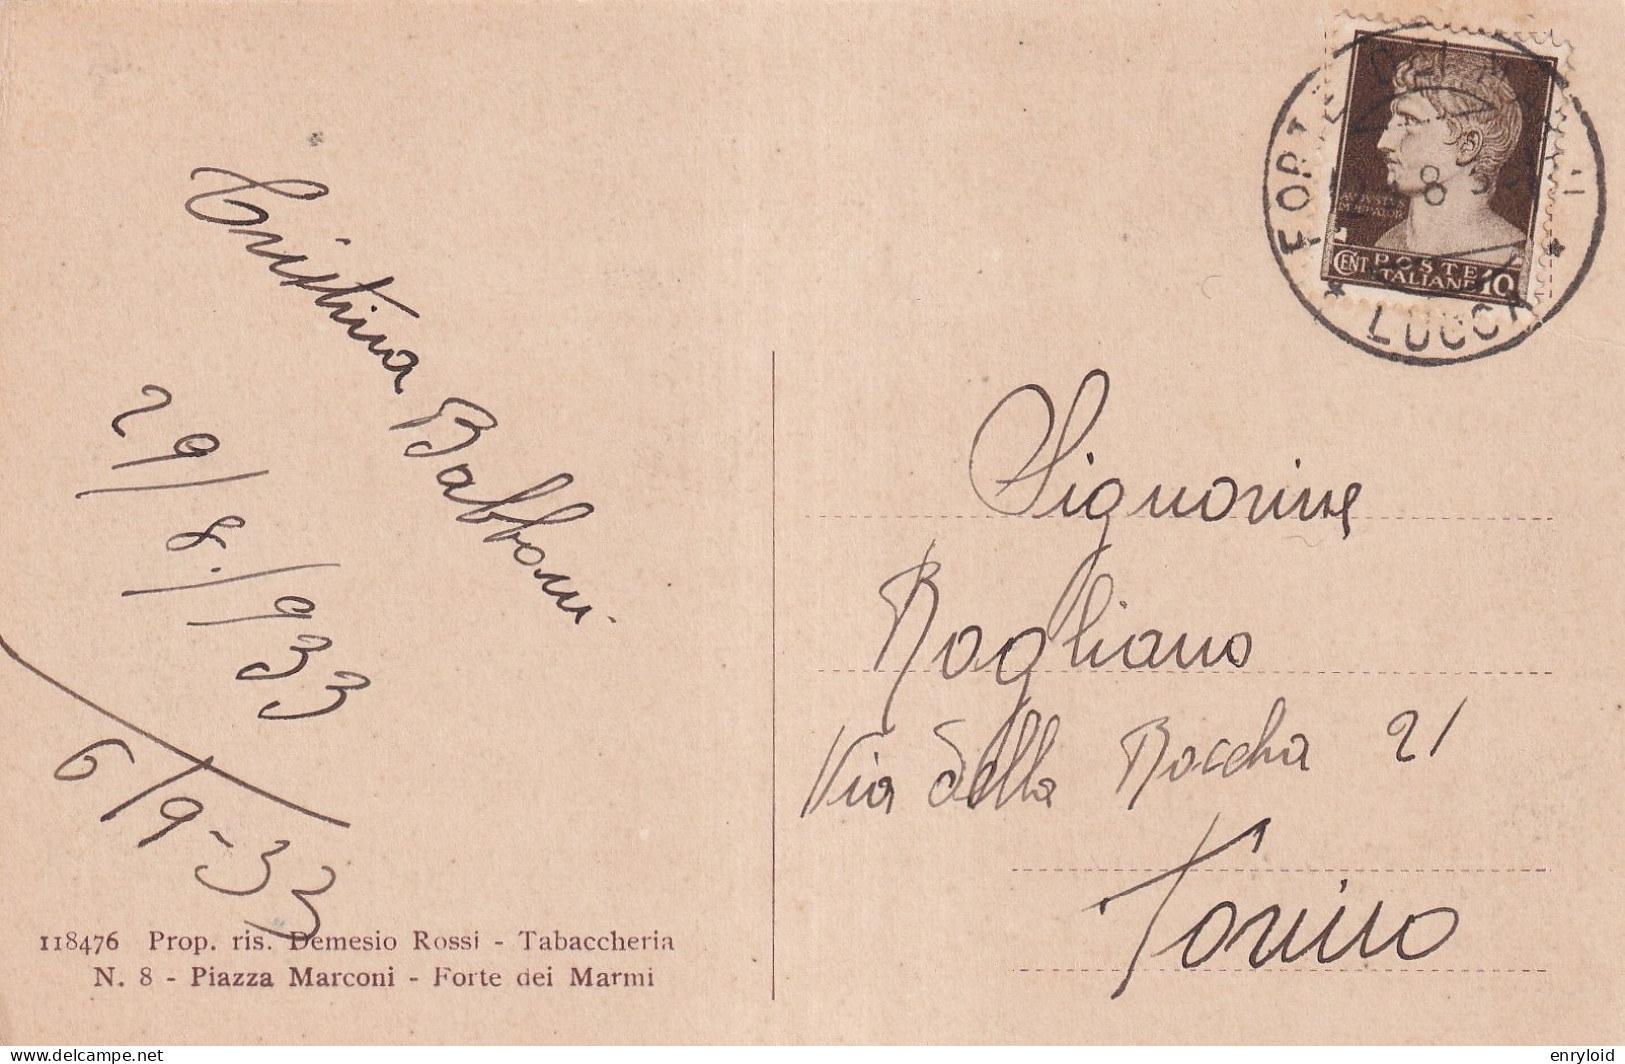 Cristina Babboni
29/8./933
6/9-33
118476 Prop. ris. Demesio Rossi - Tabaccheria
N. 8 - Piazza Marconi - Forte dei Marmi
FORTE DEI MARMI
8
* LUCCA *
CENT POSTE 10
ITALIANE
Signorine
Rogliano
Via della Rocca 21
Torino
enryloid
delcampe.net